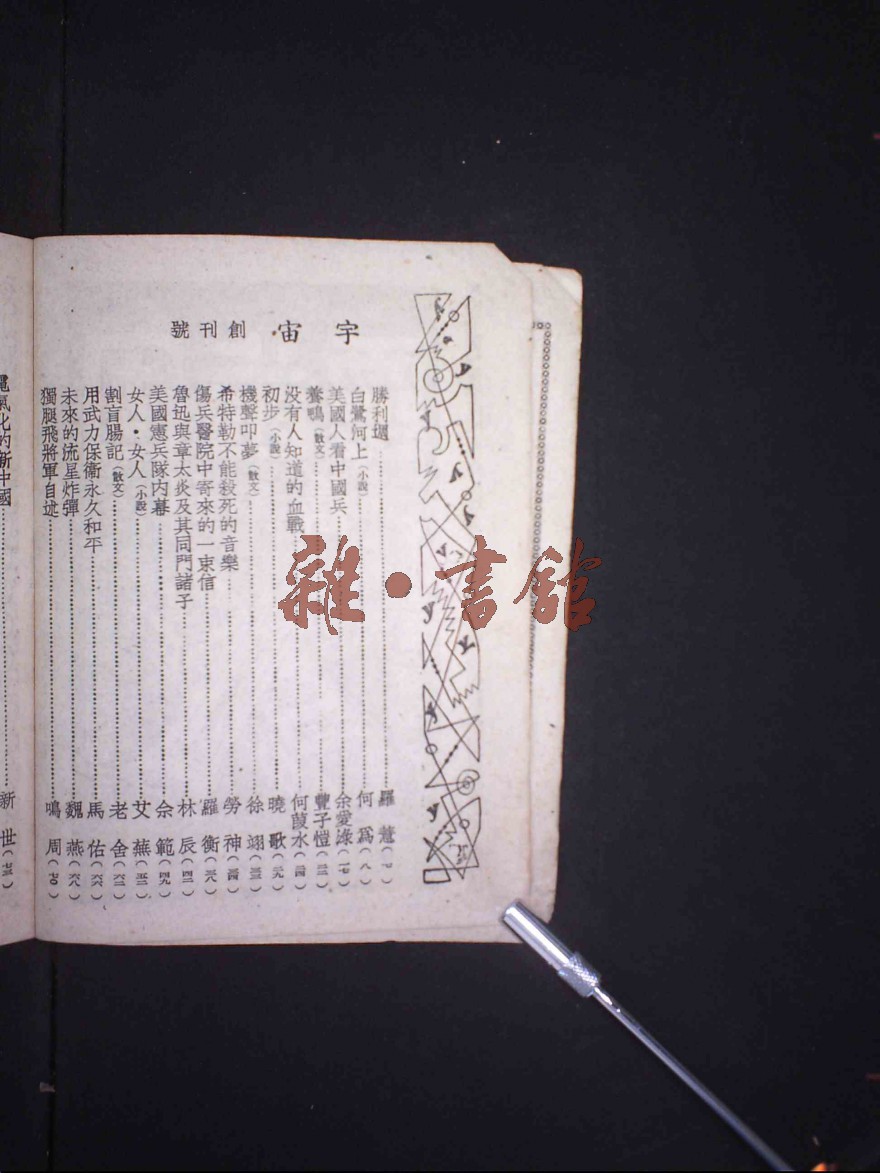 宇宙 創刊號
勝利還……羅蓀(一)
白鷺河上(小說)……何為(八)
美國人看中國兵……余愛淥(一七)
養鴨(散文)……豐子愷(二二)
没有人知道的血戰……何葭水(二四)
初步(小說)……曉歌(二九)
機聲叩夢(散文)……徐翊(三三)
希特勒不能殺死的音樂……勞神(三四)
傷兵醫院中寄來的一束信……羅衡(三八)
魯迅與章太炎及其同門諸子……林辰(四二)
美國憲兵隊內幕……佘範(四九)
女人・女人(小說)……艾蕪(五二)
割盲腸記(散文)……老舍(六二)
用武力保衛永久和平……馬佑(六六)
未來的流星炸彈……魏燕(六八)
獨腿飛將軍自述……鳴周(七〇)
電氣化的新中國……新世(七三)
雜・書館